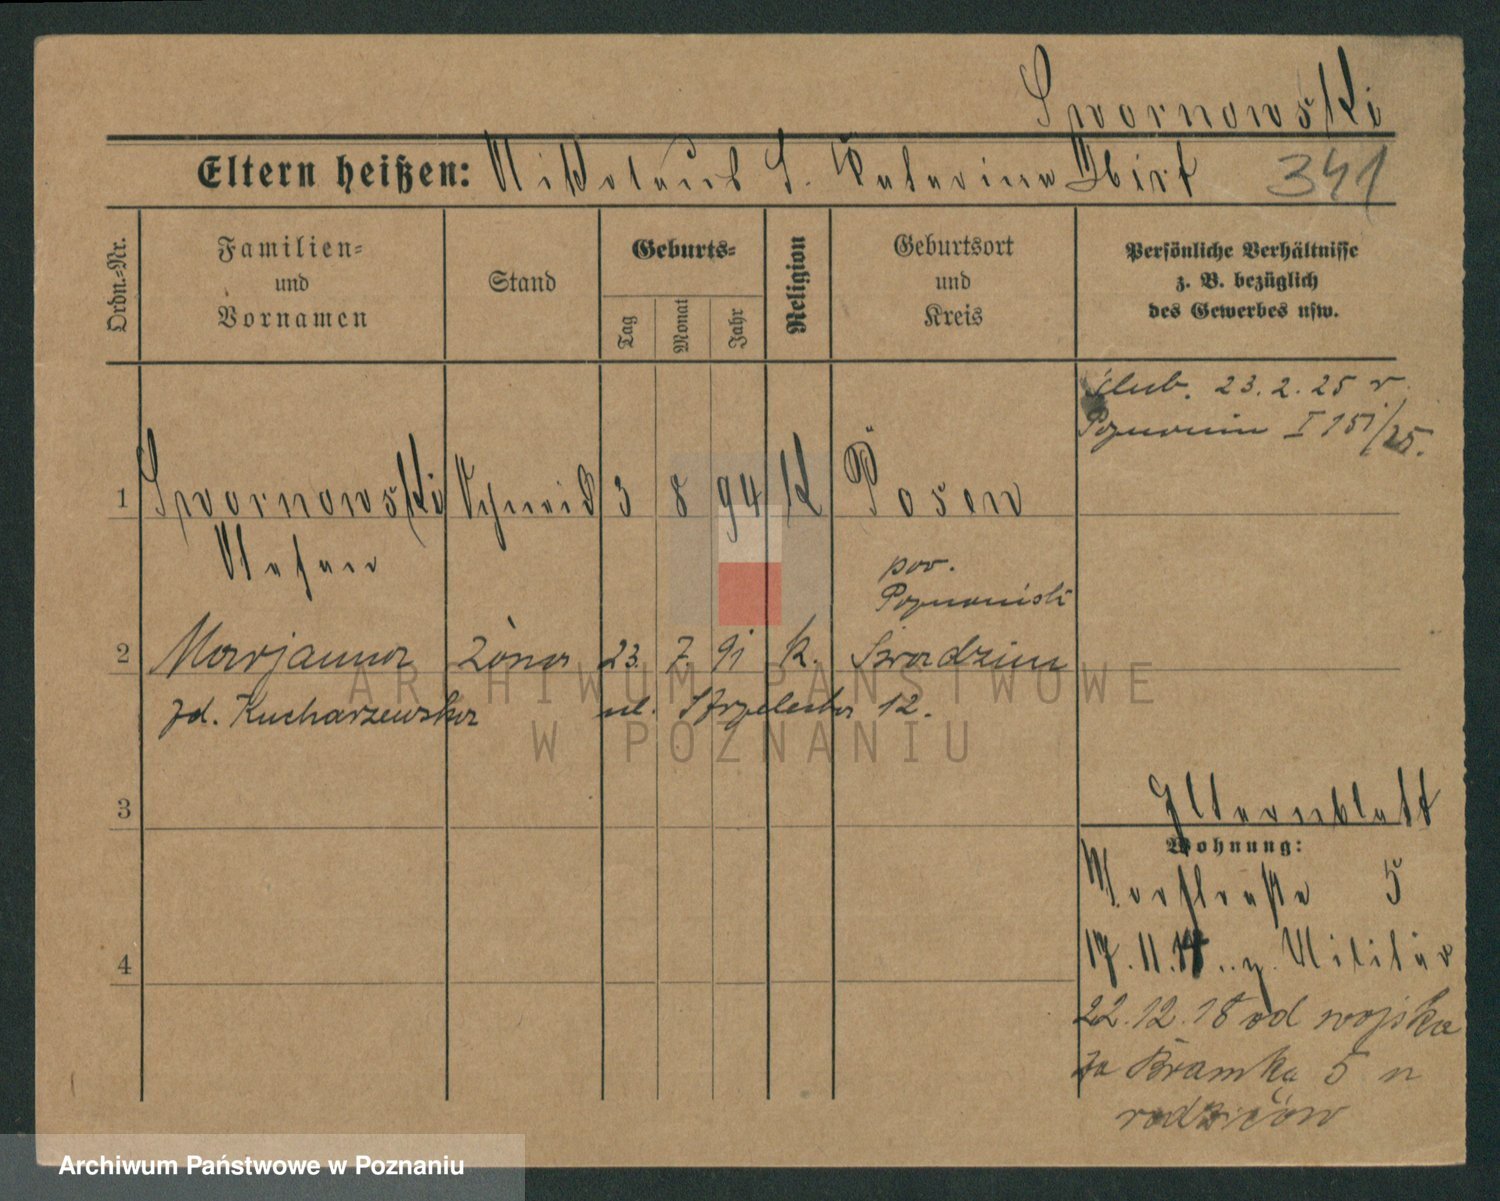 Swornowski
Eltern heißen: Nikolaus S. Katarina Hirt 341
Ordn.-Nr.
Familien-
und
Vornamen
Stand
Geburts-
Tag
Monat
Jahr
Religion
Geburtsort
und
Kreis
Persönliche Verhältnisse
z. B. bezüglich
des Gewerbes usw.
ślub. 23.2.25 r
Poznaniu I 151/25.
1 Swornowski Schneid 3 8 94 K Posen
Stefan
pow.
Poznański
2 Marjanna żona 23. 7. 91 k. Swadzim
zd. Kucharzewska ul. Strzelecka 12.
3
Elternblatt
Wohnung:
5
4
17.11.14.. z. Militär
22.12.18 od wojska
za Bramką 5 u
rodziców
ARCHIWUM PAŃSTWOWE
W POZNANIU
Archiwum Państwowe w Poznaniu